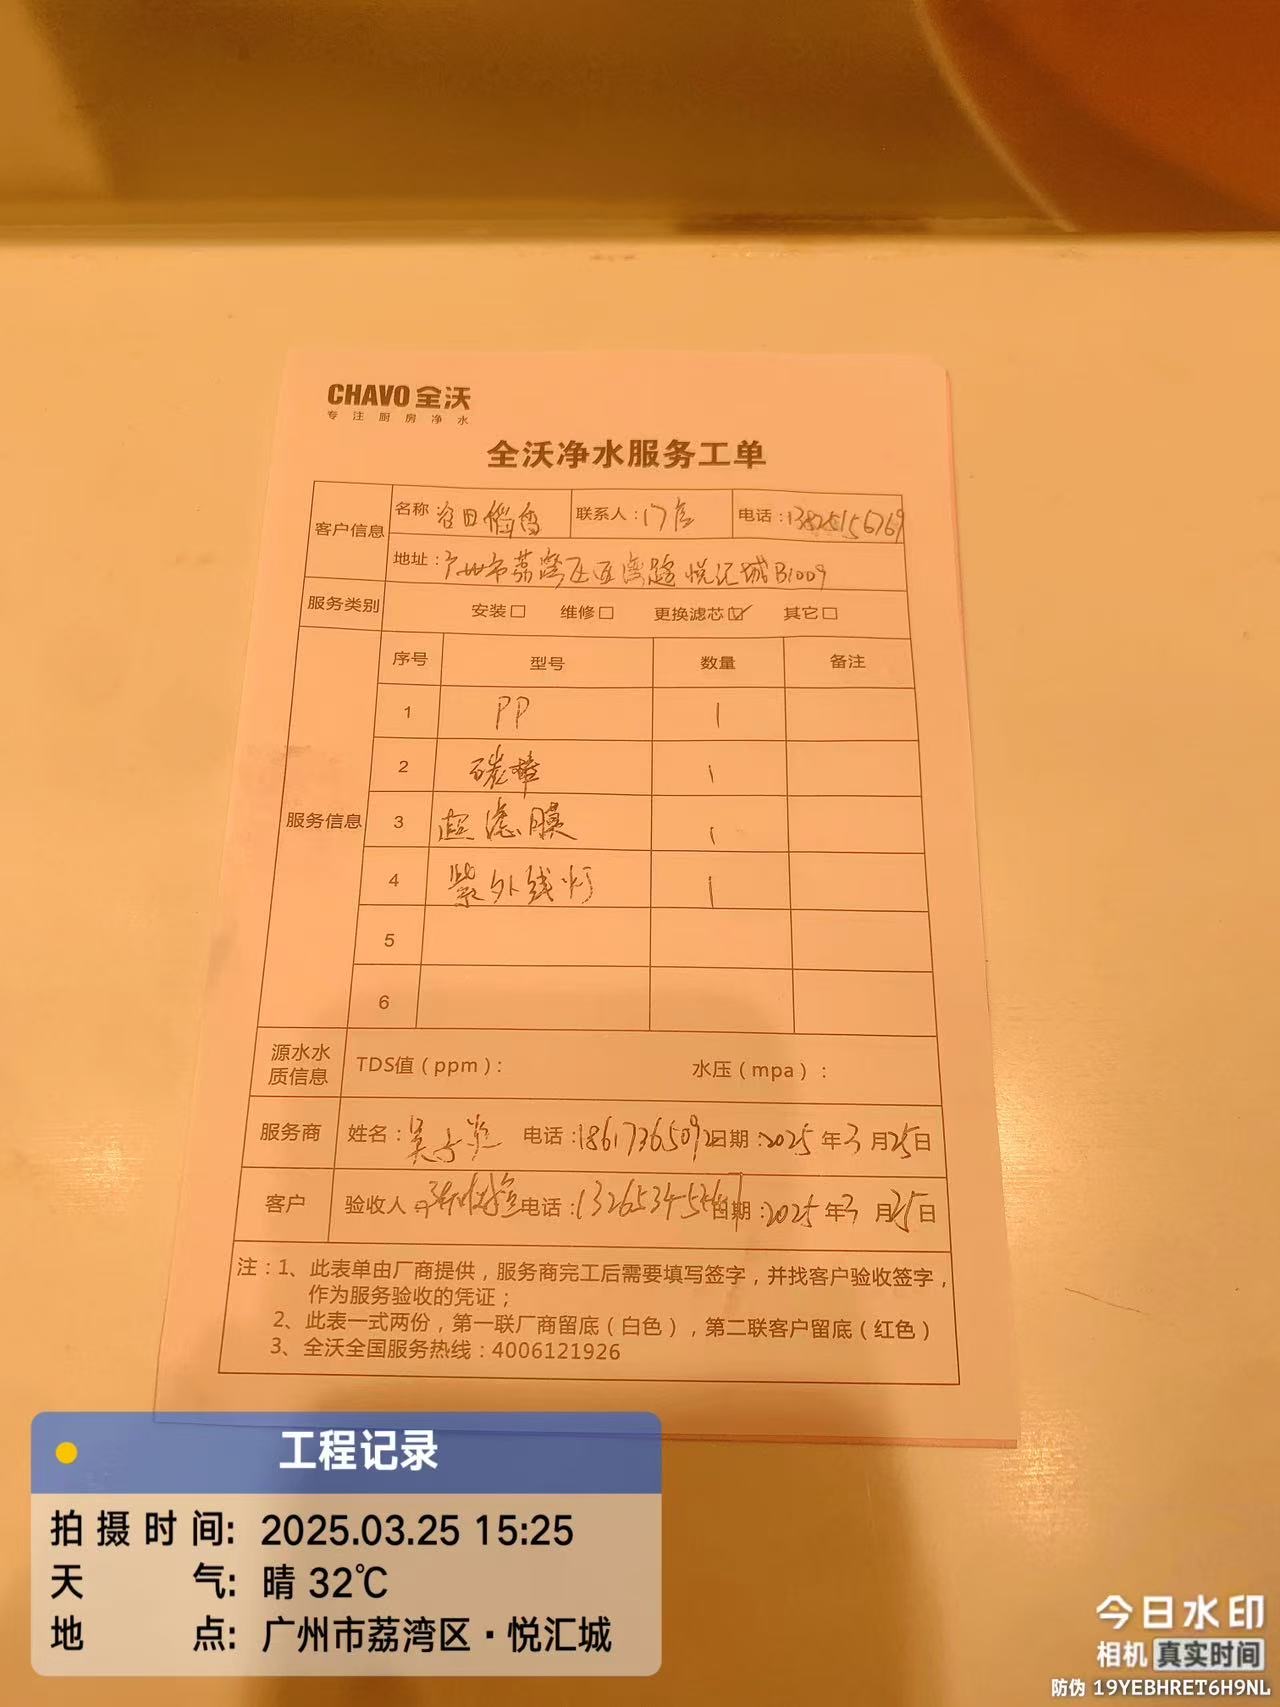 CHAVO 全沃
专注厨房净水
全沃净水服务工单
客户信息 名称 谷田稻香 联系人: 门店 电话: 13825156769
地址: 广州市荔湾区 湾路 悦汇城B1009
服务类别 安装□ 维修□ 更换滤芯☑ 其它□
服务信息 序号 型号 数量 备注
1 PP 1
2 碳棒 1
3 超滤膜 1
4 紫外线灯 1
5
6
源水水质信息 TDS值(ppm): 水压(mpa):
服务商 姓名: 吴 电话: 18617365092 日期: 2025年3月25日
客户 验收人 电话: 日期: 2025年3月25日
注:1、此表单由厂商提供,服务商完工后需要填写签字,并找客户验收签字,
作为服务验收的凭证;
2、此表一式两份,第一联厂商留底(白色),第二联客户留底(红色)
3、全沃全国服务热线:4006121926
工程记录
拍摄时间: 2025.03.25 15:25
天气: 晴 32℃
地点: 广州市荔湾区·悦汇城
今日水印
相机 真实时间
防伪 19YEBHRET6H9NL